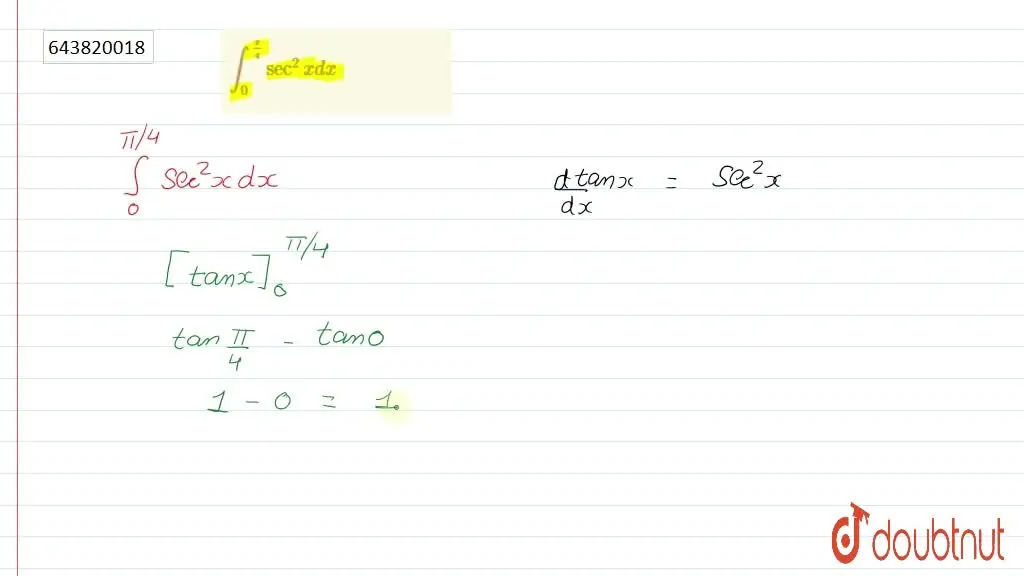 643820018
∫₀^(π/4) sec² xdx
π/4
∫ sec²x dx
0
d tanx = sec²x
dx
[tanx]₀^(π/4)
tan π/4 - tan0
1 - 0 = 1.
doubtnut